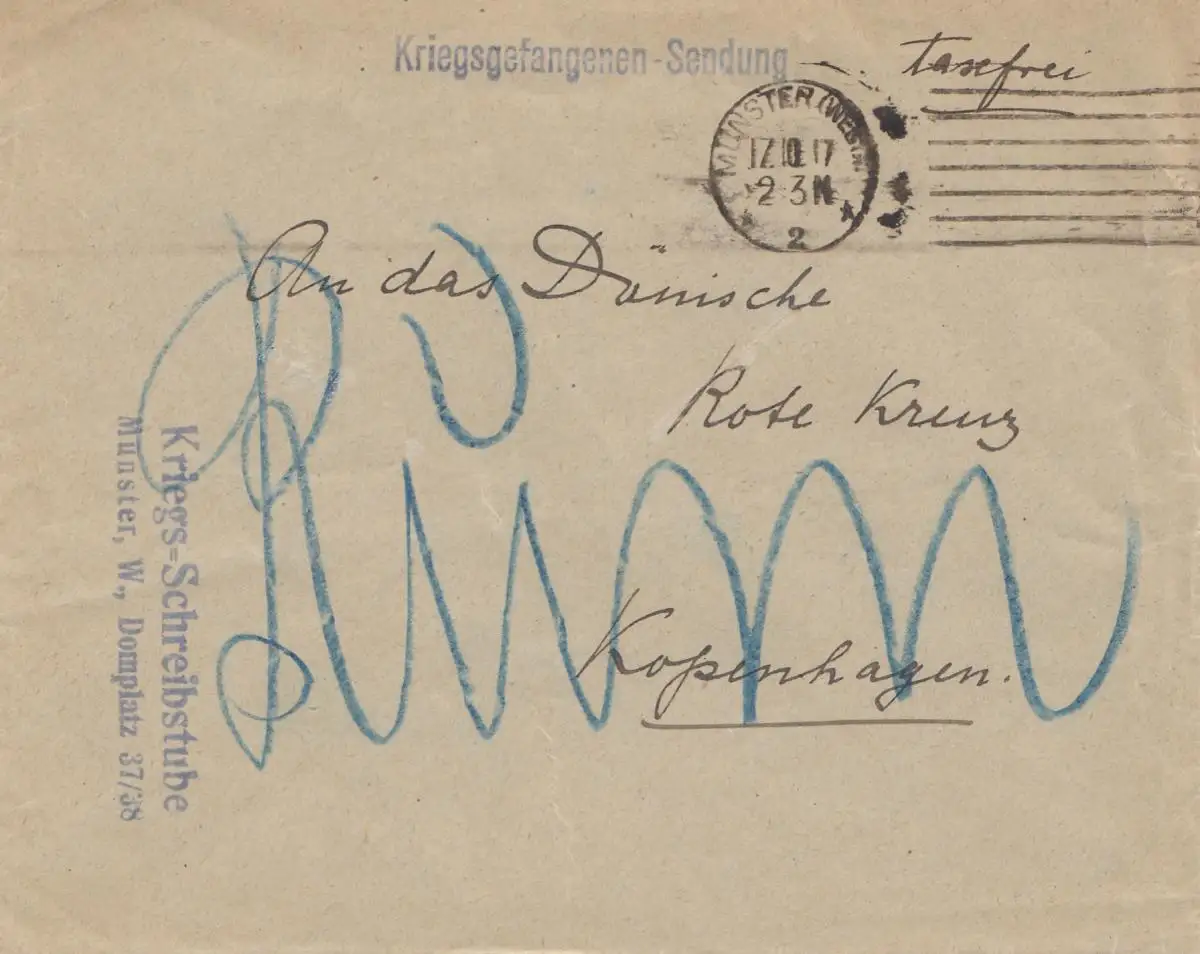 Kriegsgefangenen-Sendung
taxefrei
MÜNSTER (WESTF.
17.10.17
2-3N
* 2 *
An das Dänische
Rote Kreuz
Kopenhagen.
Kriegs=Schreibstube
Münster, W., Domplatz 37/38